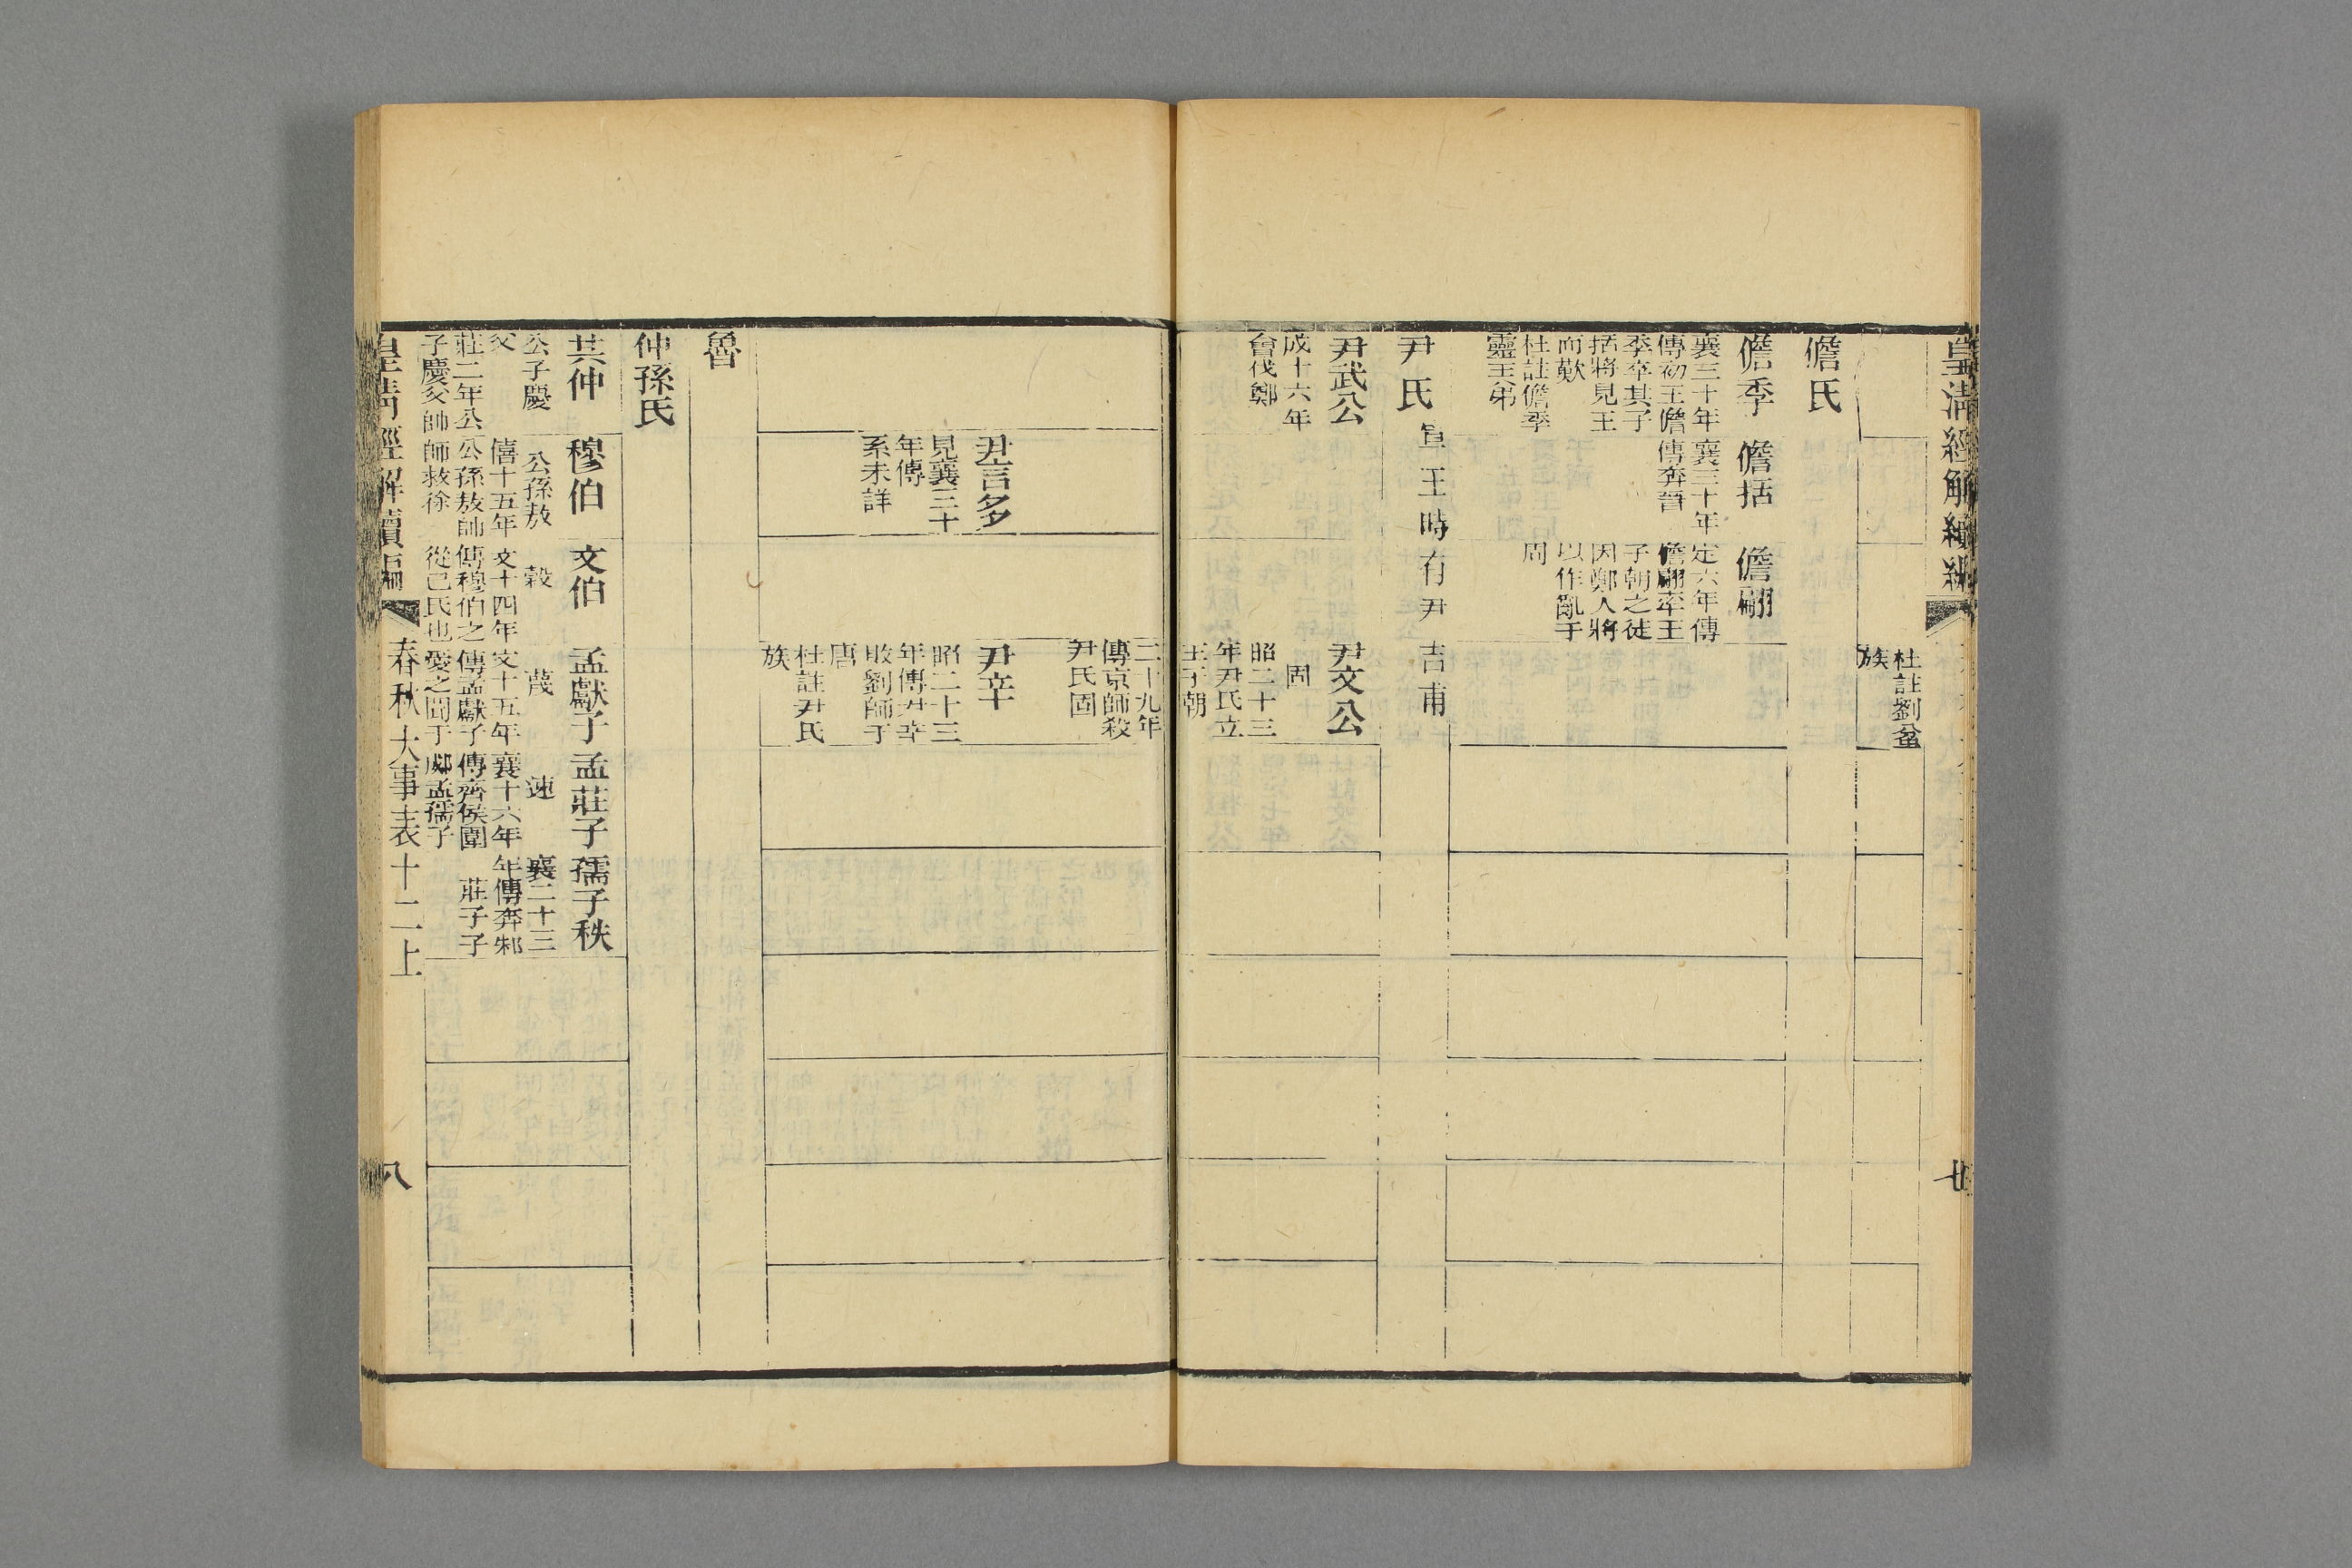 皇清經解續編
杜註劉盆
族
儋氏
儋季
襄三十年
傳初王儋
季卒其子
括將見王
而歎
杜註儋季
靈王弟
儋括
襄三十年
傳奔晉
儋翩
定六年傳
儋翩率王
子朝之徒
因鄭人將
以作亂于
周
尹氏 宣王時有尹吉甫
尹武公
成十六年
會伐鄭
尹文公
固
昭二十三
年尹氏立
王子朝
二十九年
傳京師殺
尹氏固
尹言多
見襄三十
年傳
系未詳
尹辛
昭二十三
年傳尹辛
敗劉師于
唐
杜註尹氏
族
魯
仲孫氏
共仲
公子慶
父
莊二年公
子慶父帥
穆伯
公孫敖
僖十五年
公孫敖帥
師救徐
文伯
穀
文十四年
傳穆伯之
從己氏也
孟獻子
蔑
文十五年
傳孟獻子
愛之聞于
孟莊子
速
襄十六年
傳齊侯圍
郕孟孺子
孺子秩
襄二十三
年傳奔邾
莊子子
皇清經解續編
春秋大事表十二上
八